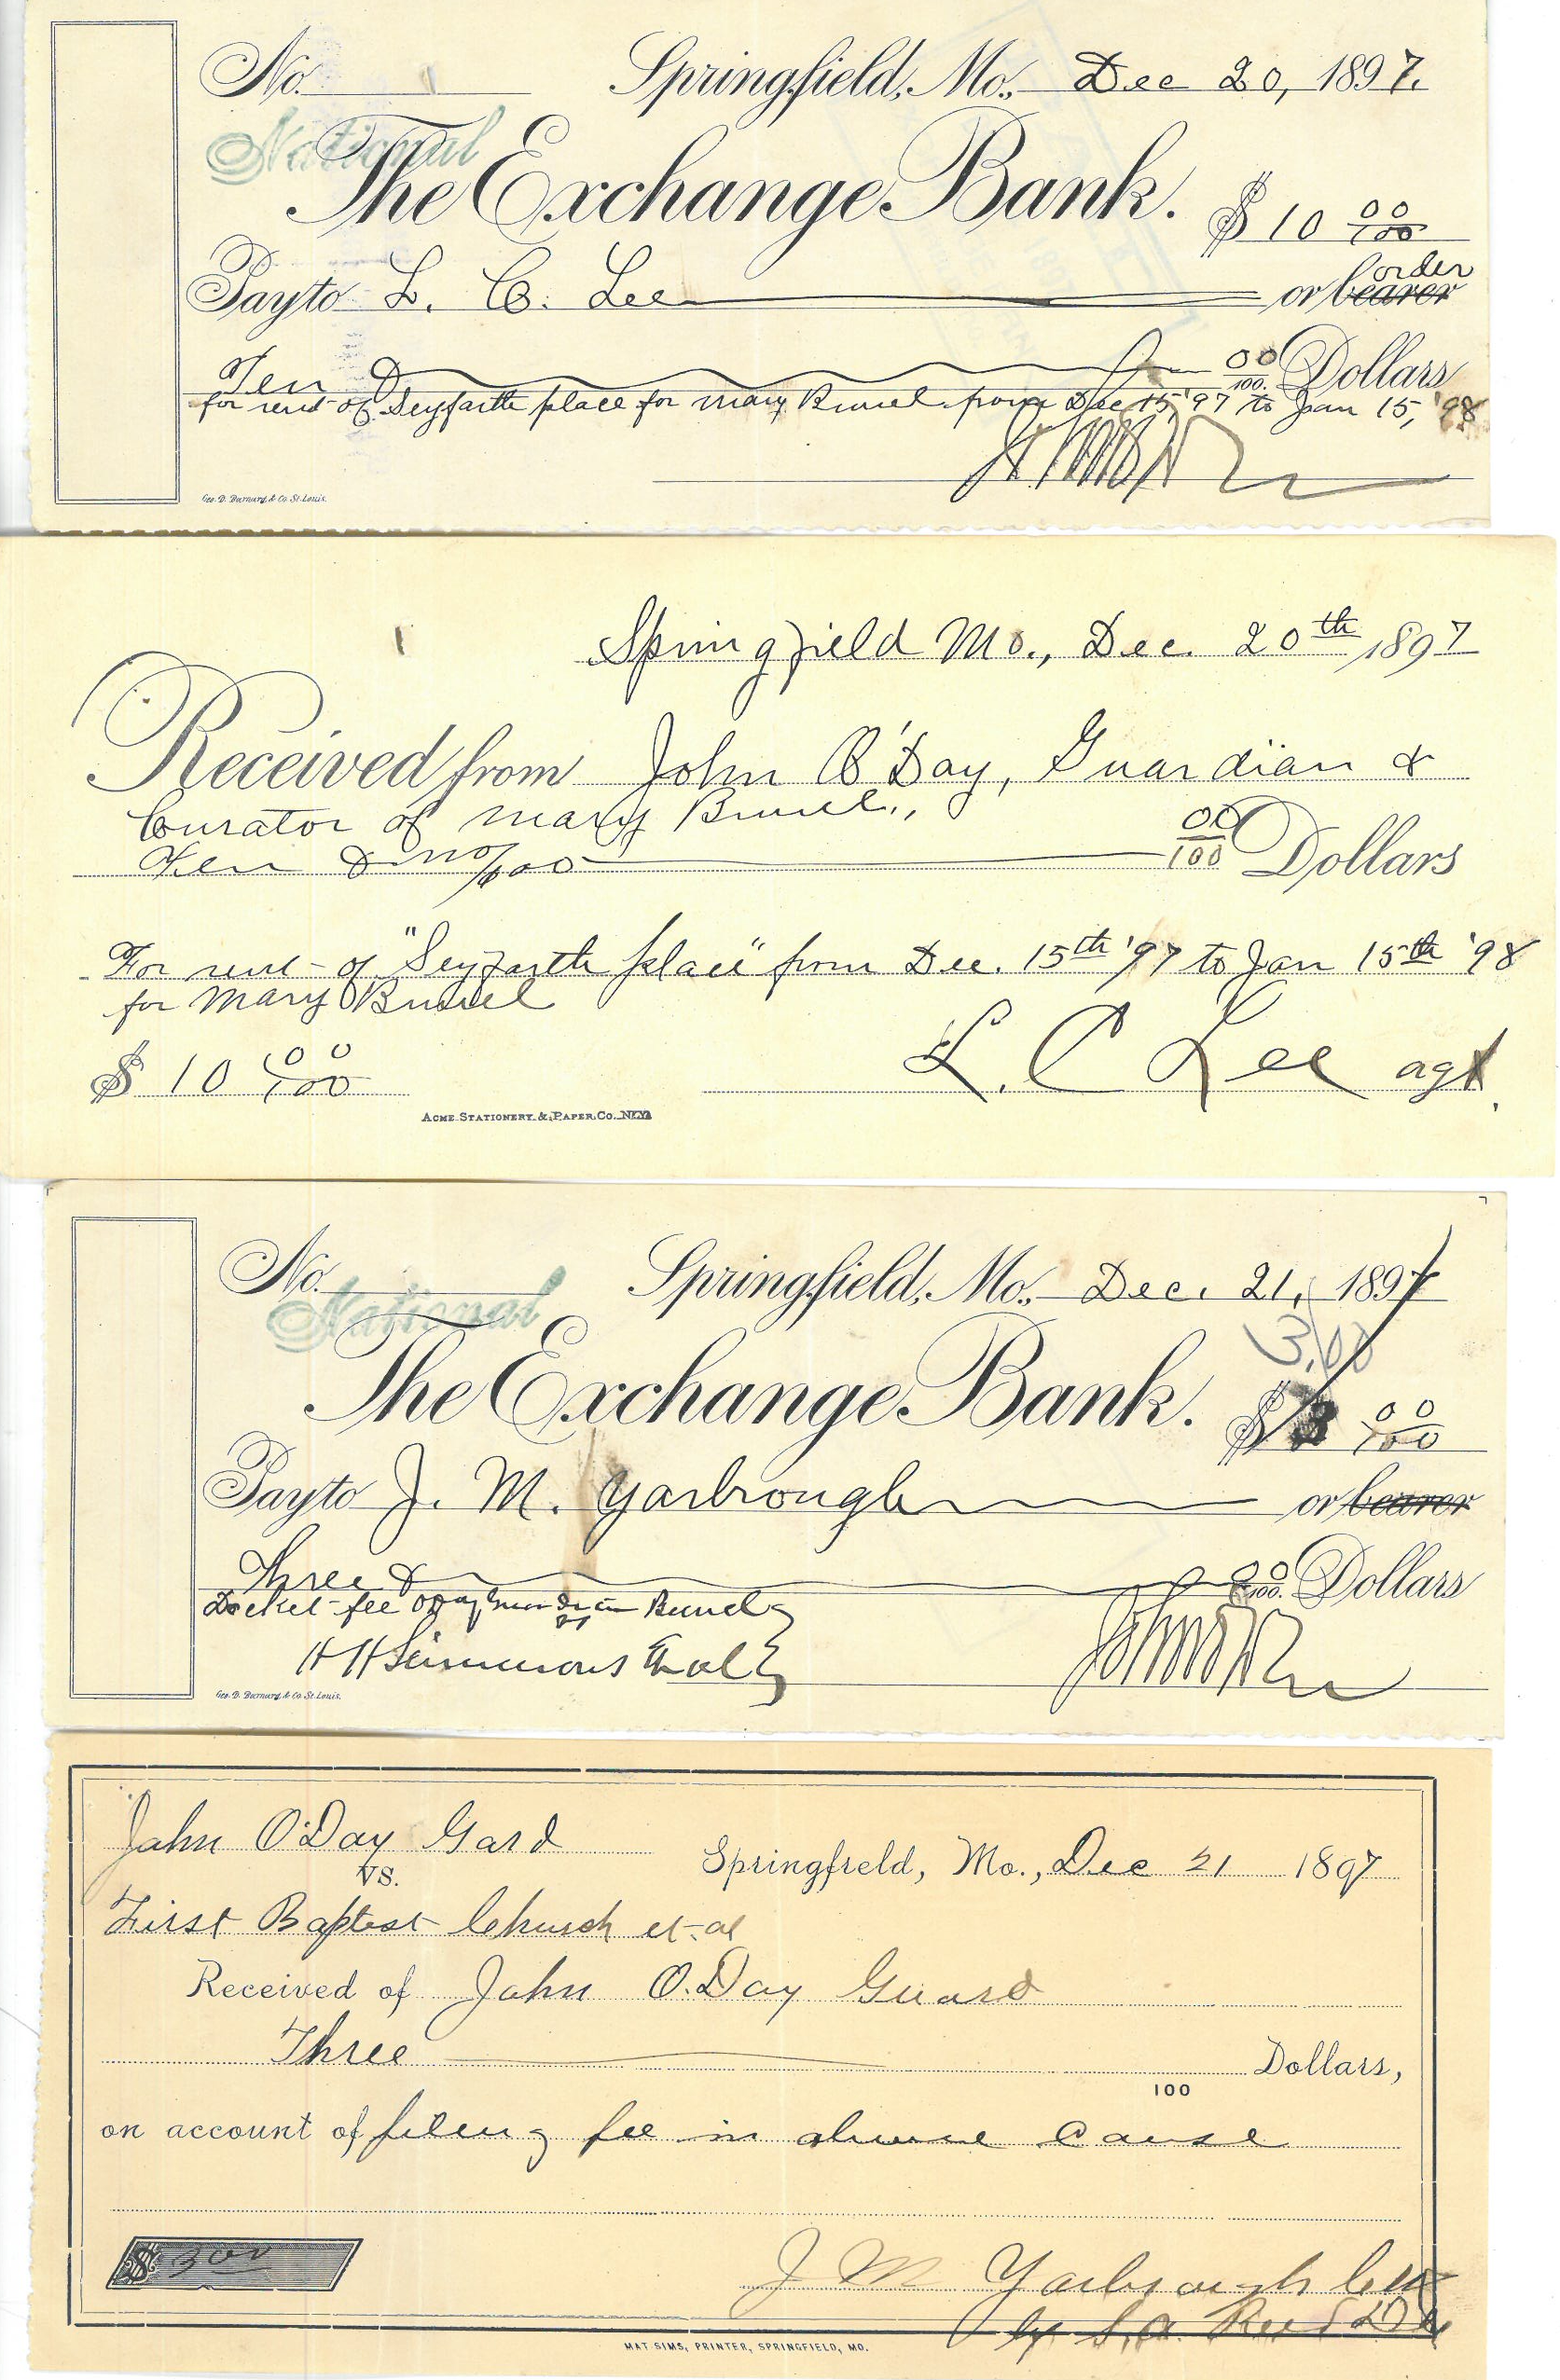 No. Springfield, Mo. Dec 20, 1897.
National
The Exchange Bank. $ 10 00/100
order
Pay to L. C. Lee or bearer
Ten & 00/100. Dollars
for rent of Seyfarth place for Mary from Dec 15, '97 to Jan 15, '98
Geo. D. Barnard & Co. St. Louis.
Springfield Mo., Dec. 20th 1897
Received from John O'Day, Guardian &
Curator of Mary
Ten & no/100 00/100 Dollars
For rent of "Seyfarth place" from Dec. 15th '97 to Jan 15th '98
for Mary
$ 10 00/100 L. C Lee agt.
Acme Stationery & Paper Co. N.Y.
No. Springfield, Mo. Dec. 21, 1897
National
3.00
The Exchange Bank. $ 3 00/100
Pay to J. M. Yarbrough or bearer
Three & 00/100. Dollars
Docket fee
vs
H H Simmons et al
Geo. D. Barnard & Co. St. Louis.
John O'Day Gard
vs.
Springfield, Mo., Dec 21 1897
First Baptist Church et al
Received of John O.Day Guard
Three Dollars,
100
on account of fileng fee in above cause
$ 300
J M Yarbrough Clk
by S.A.
MAT SIMS, PRINTER, SPRINGFIELD, MO.